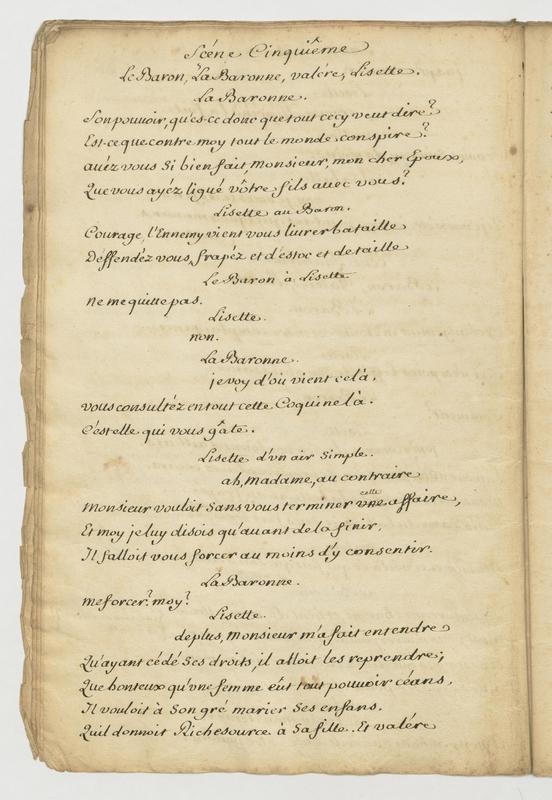 Scéne Cinquiême
Le Baron, La Baronne, valére, Lisette.
La Baronne.
Son pouvoir, qu'es-ce donc que tout cecy veut dire?
Est-ce que contre moy tout le monde conspire?
avéz vous si bien fait, Monsieur, mon cher Epoux,
Que vous ayéz ligué vôtre fils avec vous?
Lisette au Baron.
Courage, l'Ennemy vient vous livrer bataille
Deffendéz vous, frapéz et d'estoc et de taille
Le Baron à Lisette
ne me quitte pas.
Lisette.
non.
La Baronne.
je voy d'où vient celà,
vous consultéz en tout cette Coquine là.
C'est elle qui vous gâte.
Lisette d'vn air simple.
ah, Madame, au contraire
Monsieur vouloit sans vous terminer vne cette affaire,
Et moy je luy disois qu'avant de la finir,
Il falloit vous forcer au moins d'y consentir.
La Baronne.
me forcer? moy?
Lisette.
de plus, Monsieur m'a fait entendre
Qu'ayant cédé ses droits, il alloit les reprendre;
Que honteux qu'vne femme eût tout pouvoir céans,
Il vouloit à son gré marier ses enfans.
Quil donnoit Richesource à sa fille. Et valére